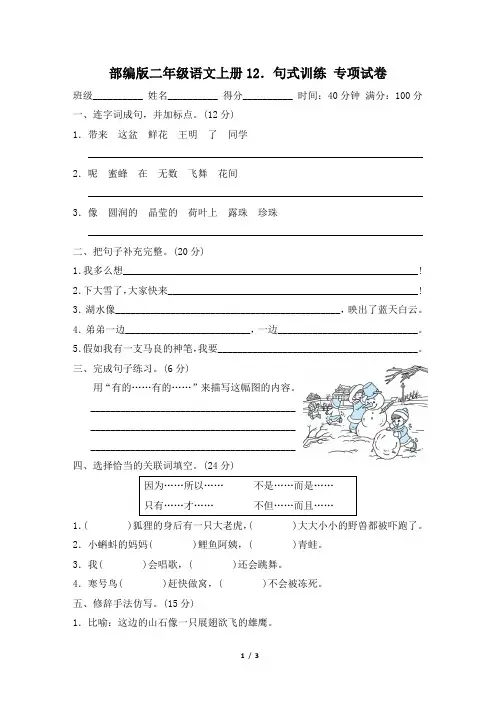 部编版二年级语文上册12．句式训练 专项试卷
班级__________ 姓名__________ 得分__________ 时间：40分钟 满分：100分
一、连字词成句，并加标点。(12分)
1．带来 这盆 鲜花 王明 了 同学
2．呢 蜜蜂 在 无数 飞舞 花间
3．像 圆润的 晶莹的 荷叶上 露珠 珍珠
二、把句子补充完整。(20分)
1.我多么想____________________！
2.下大雪了，大家快来____________________！
3．湖水像____________________，映出了蓝天白云。
4．弟弟一边____________________，一边____________________。
5.假如我有一支马良的神笔，我要____________________。
三、完成句子练习。(6分)
用“有的……有的……”来描写这幅图的内容。
四、选择恰当的关联词填空。(24分)
因为……所以…… 不是……而是……
只有……才…… 不但……而且……
1.( )狐狸的身后有一只大老虎，( )大大小小的野兽都被吓跑了。
2．小蝌蚪的妈妈( )鲤鱼阿姨，( )青蛙。
3．我( )会唱歌，( )还会跳舞。
4．寒号鸟( )赶快做窝，( )不会被冻死。
五、修辞手法仿写。(15分)
1．比喻：这边的山石像一只展翅欲飞的雄鹰。
1 / 3